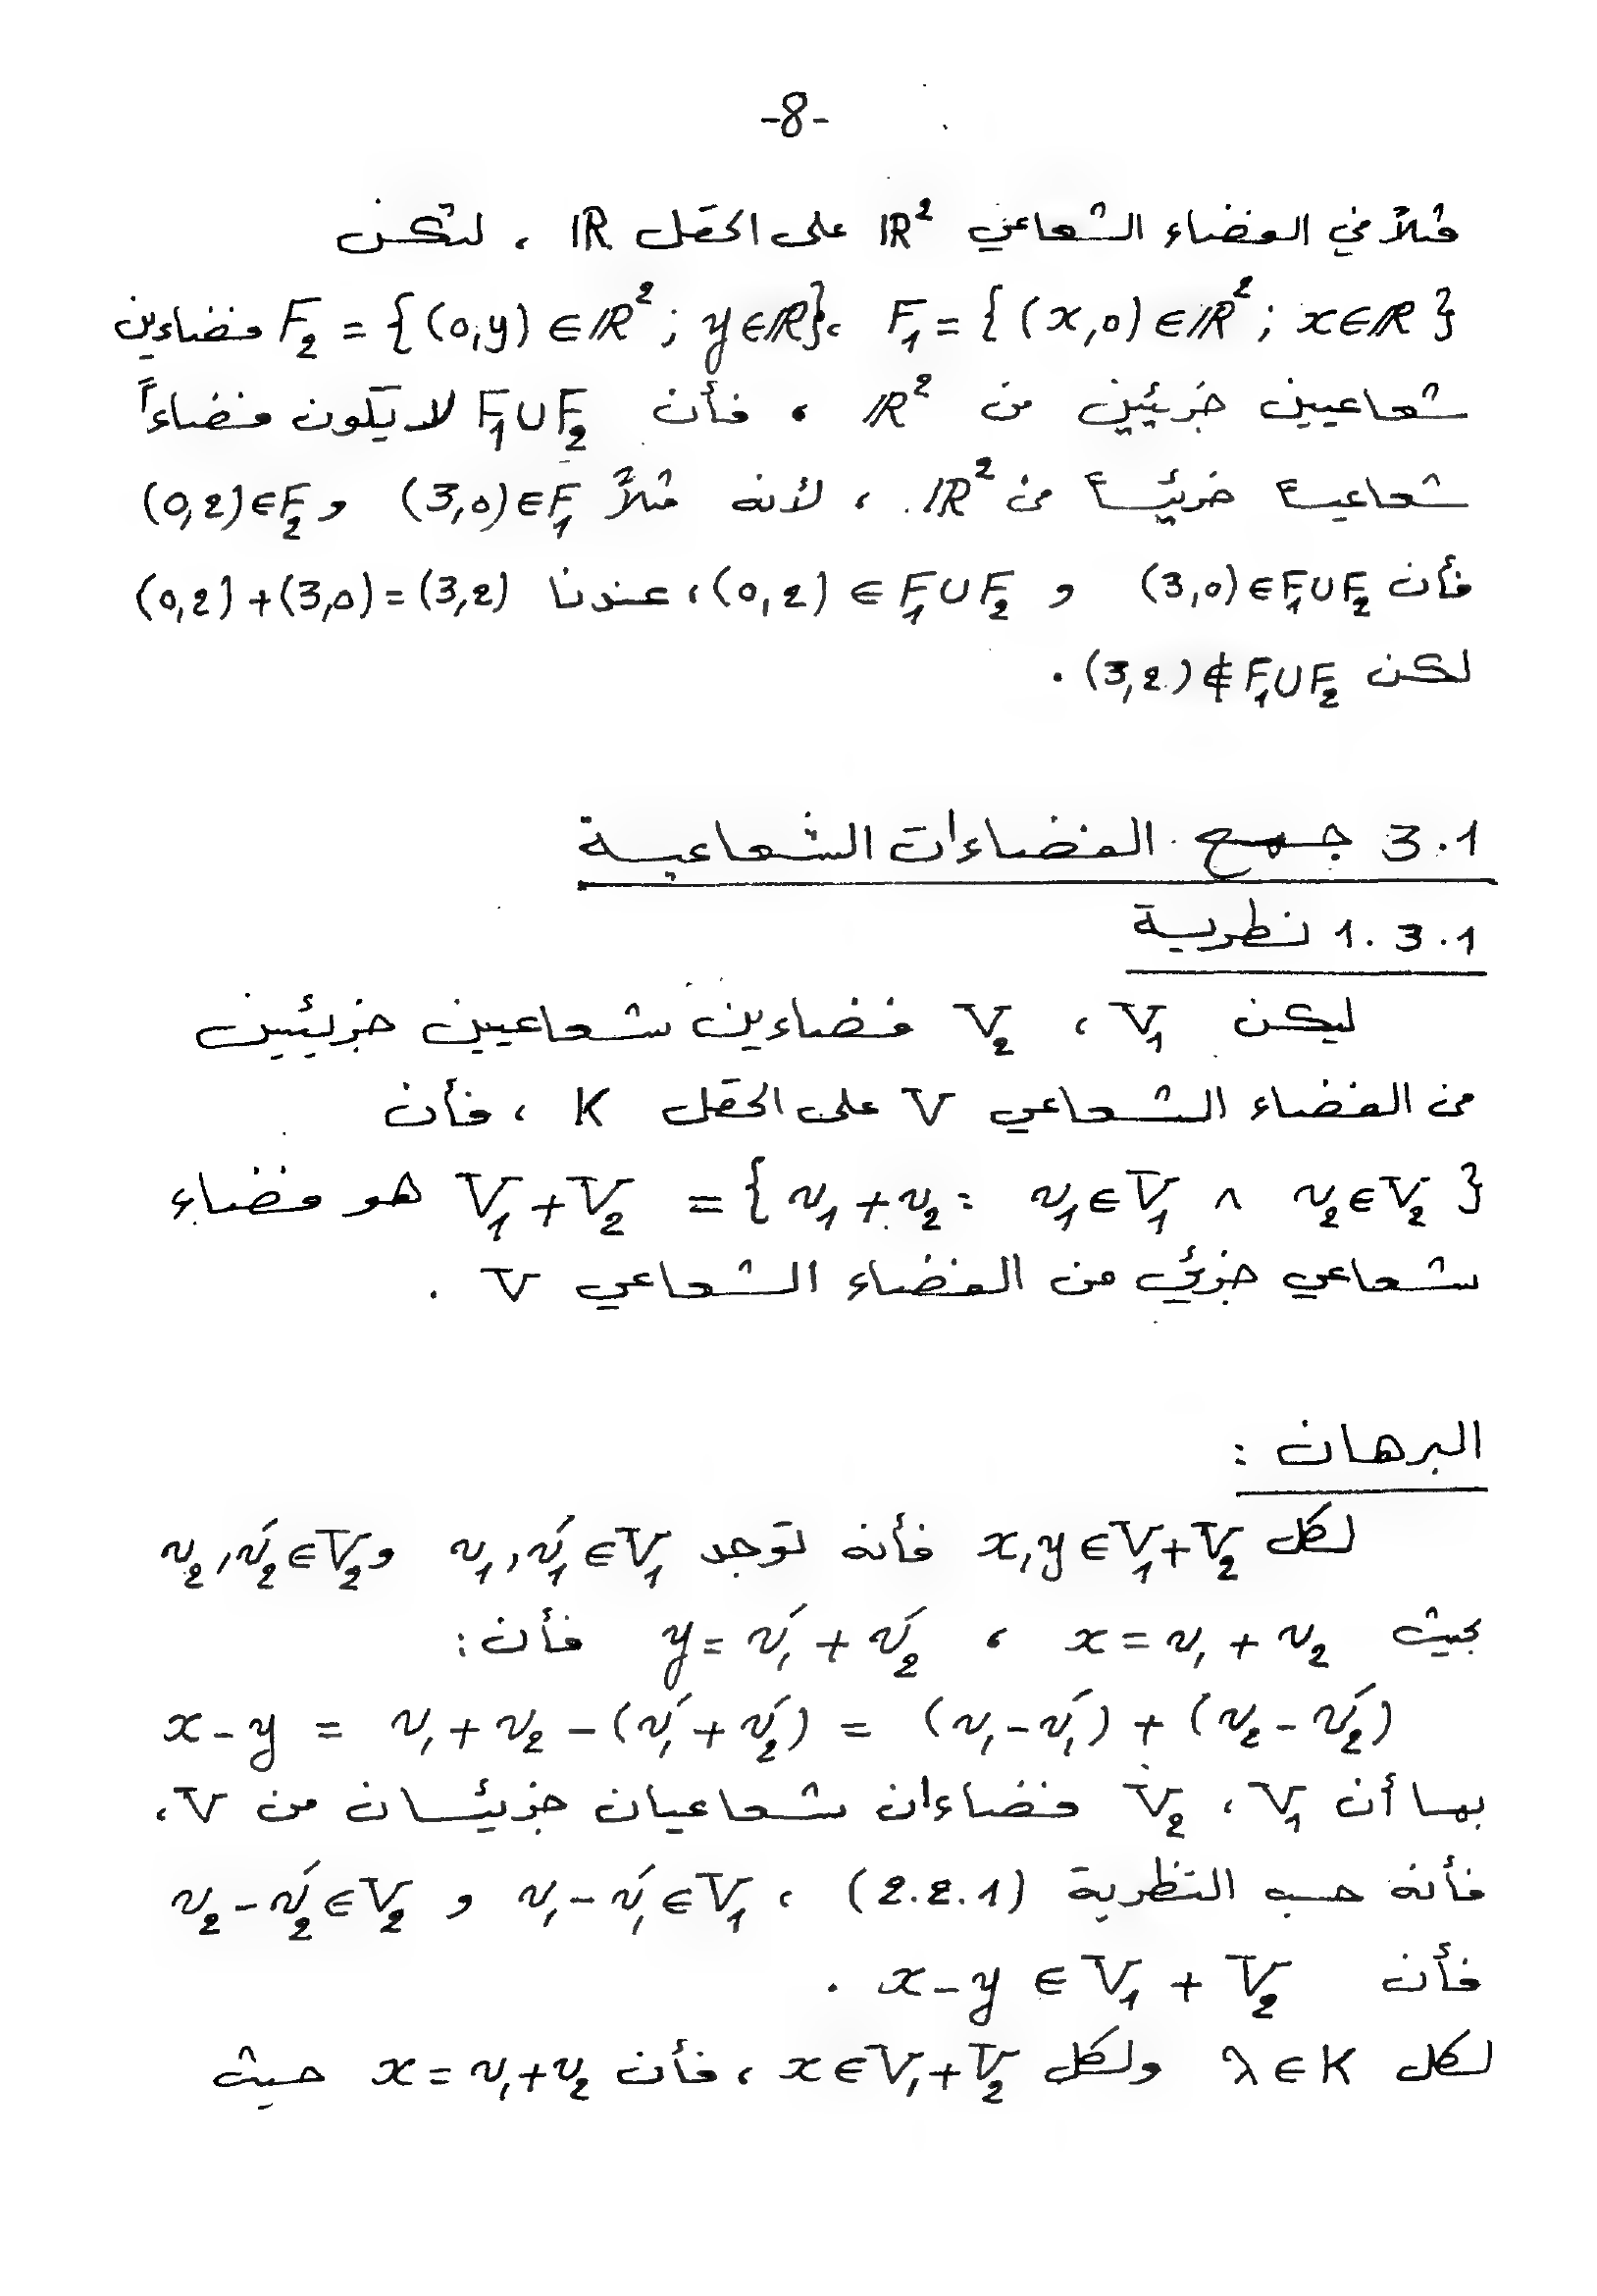 -8-
مثلاً في الفضاء الشعاعي IR² على الحقل IR ، لتكن
F₁ = { (x,0) ∈ IR² ; x ∈ IR } ، F₂ = { (0,y) ∈ IR² ; y ∈ IR } فضاءين
شعاعيين جزئيين من IR² ، فأن F₁∪F₂ لا يكون فضاءاً
شعاعياً جزئياً من IR² ، لأنه مثلاً (3,0)∈F₁ و (0,2)∈F₂
فأن (3,0)∈F₁∪F₂ و (0,2)∈F₁∪F₂ ، عندنا (0,2)+(3,0)=(3,2)
لكن (3,2)∉F₁∪F₂ .
3.1 جمع الفضاءات الشعاعية
1.3.1 نظرية
ليكن V₁ ، V₂ فضاءين شعاعيين جزئيين
من الفضاء الشعاعي V على الحقل K ، فأن
V₁+V₂ = { v₁+v₂ : v₁∈V₁ ∧ v₂∈V₂ } هو فضاء
شعاعي جزئي من الفضاء الشعاعي V .
البرهان :
لكل x,y∈V₁+V₂ فأنه توجد v₁,v₁́∈V₁ و v₂,v₂́∈V₂
بحيث x=v₁+v₂ ، y=v₁́+v₂́ فأن :
x-y = v₁+v₂-(v₁́+v₂́) = (v₁-v₁́)+(v₂-v₂́)
بما أن V₁ ، V₂ فضاءان شعاعيان جزئيان من V ،
فأنه حسب النظرية (2.2.1) ، v₁-v₁́∈V₁ و v₂-v₂́∈V₂
فأن x-y ∈ V₁+V₂ .
لكل λ∈K ولكل x∈V₁+V₂ ، فأن x=v₁+v₂ حيث